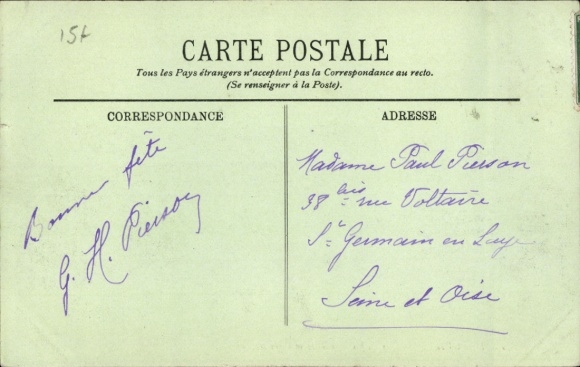 15f
CARTE POSTALE
Tous les Pays étrangers n'acceptent pas la Correspondance au recto.
(Se renseigner à la Poste).
CORRESPONDANCE
ADRESSE
Bonne fête
G. H. Pierson
Madame Paul Pierson
38 bis rue Voltaire
St Germain en Laye
Seine et Oise